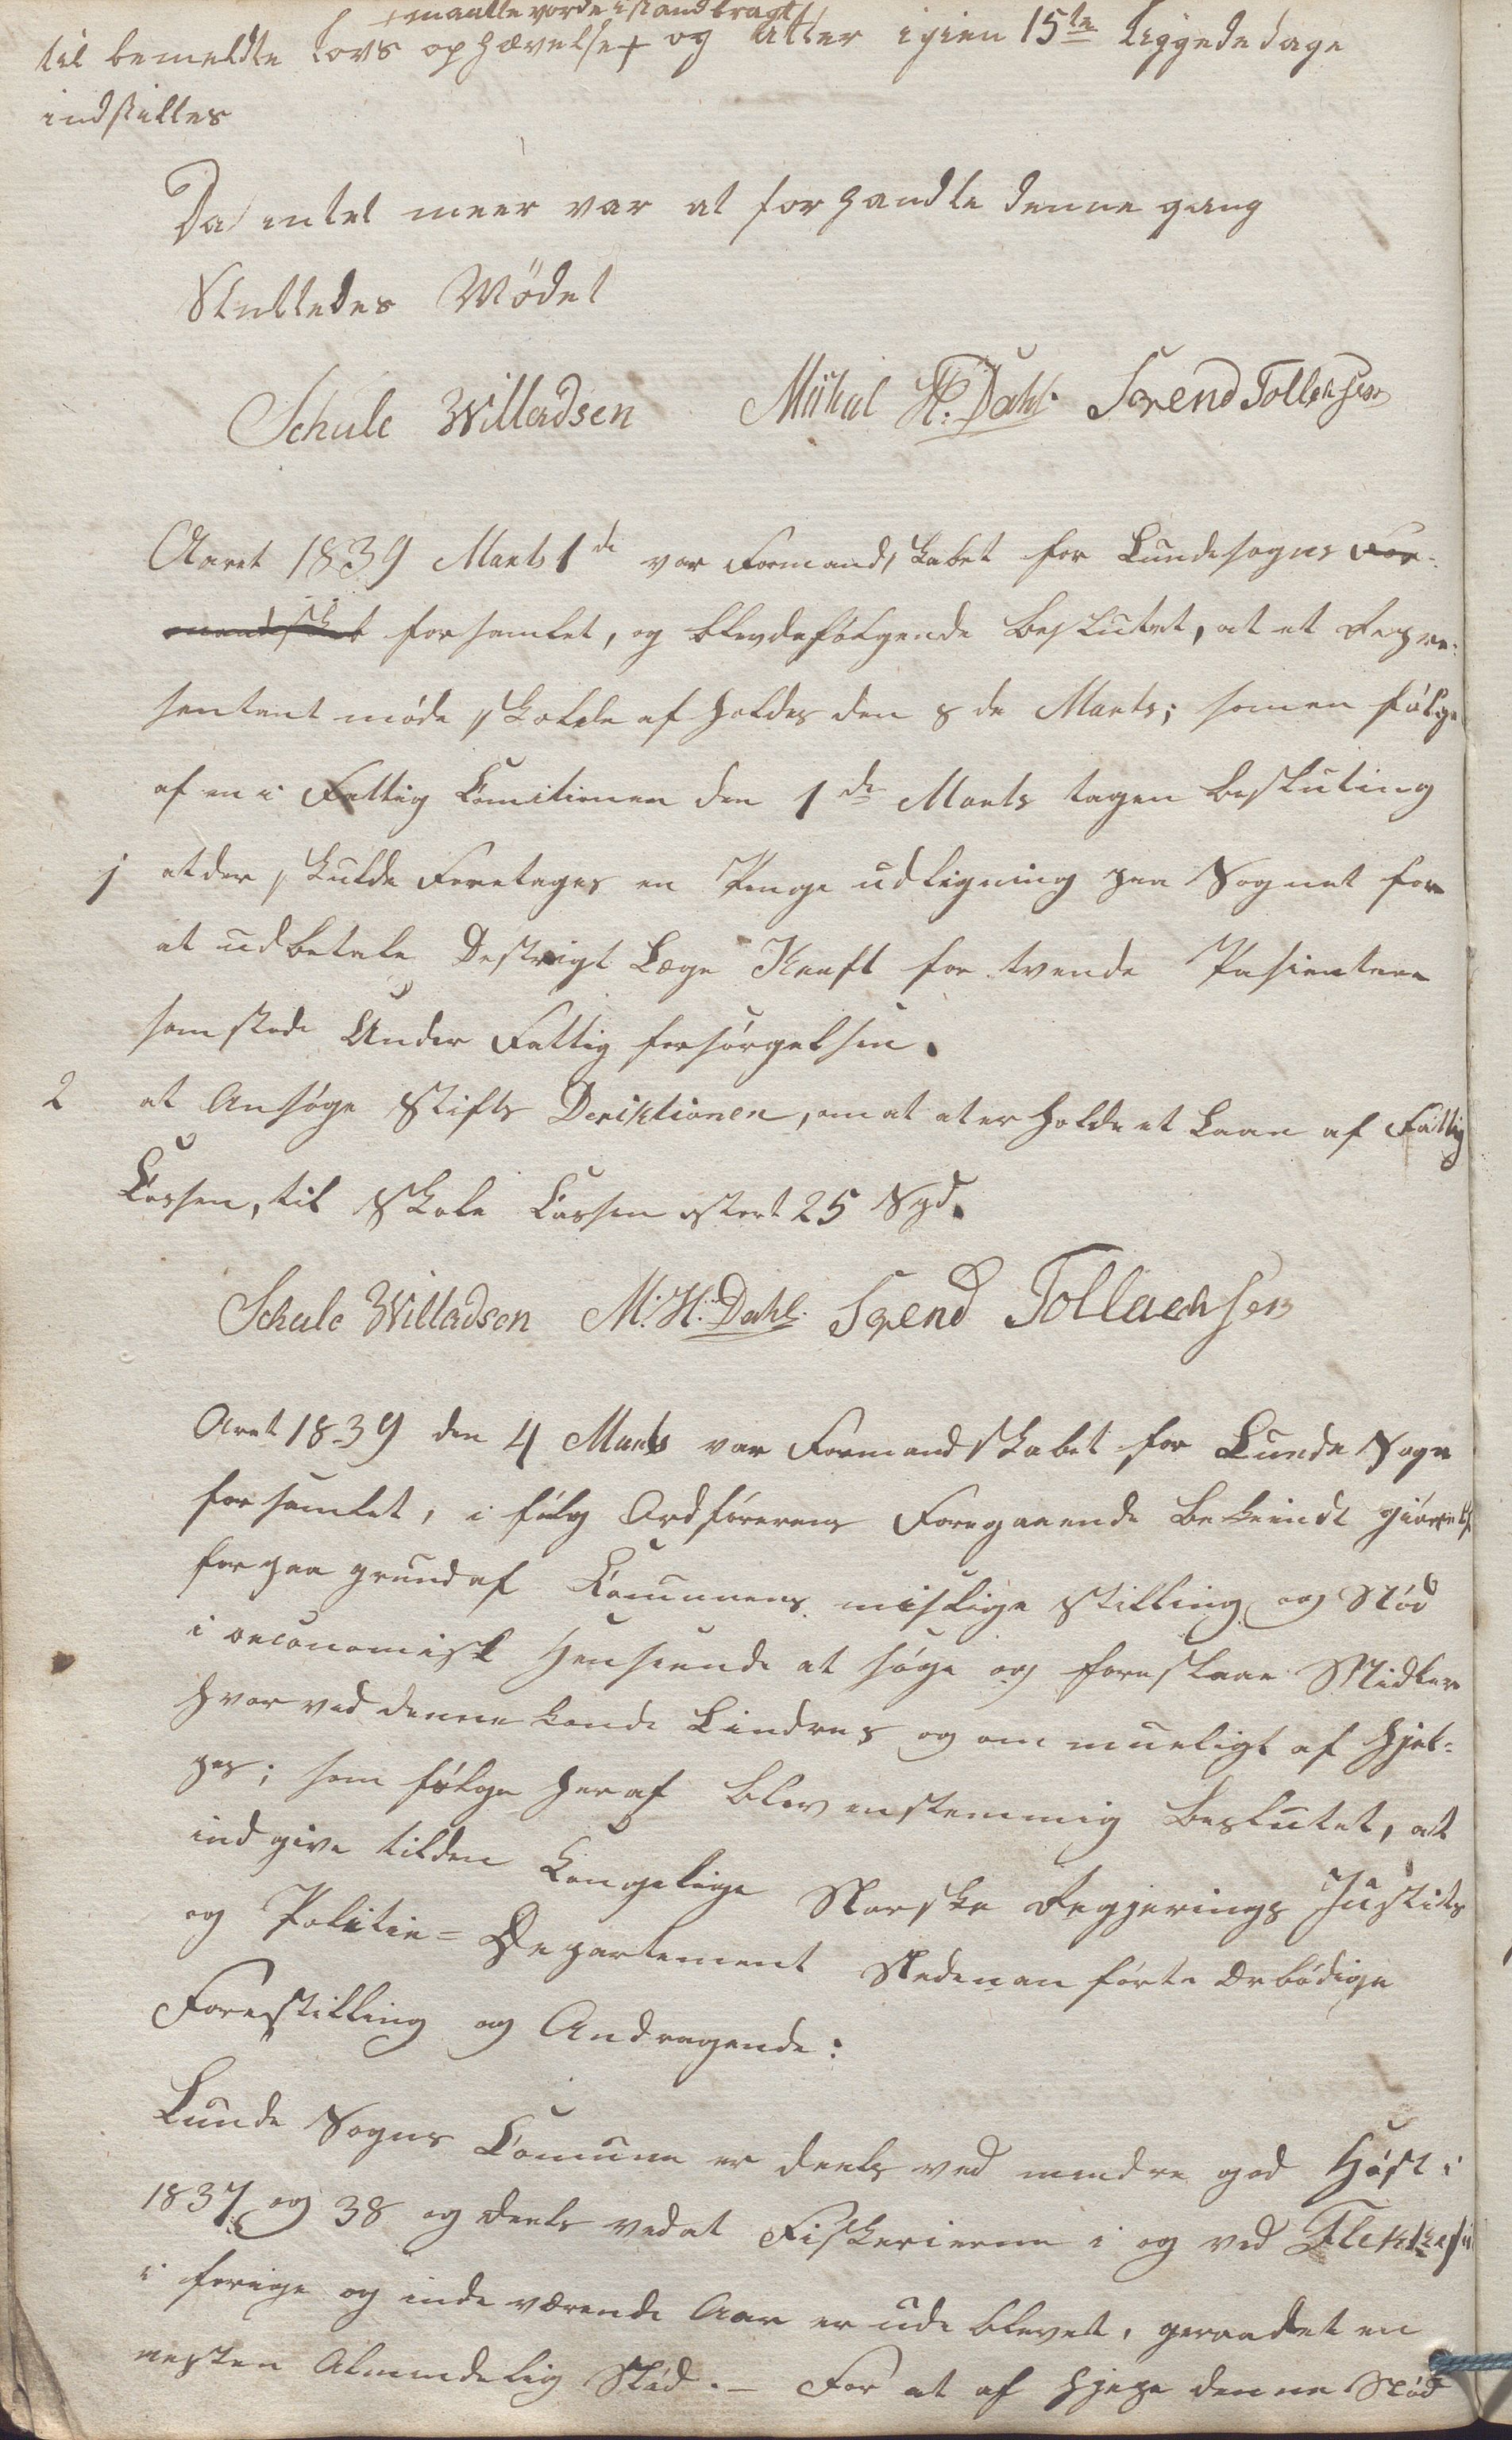 + maatte vorde istandbragt
til bemeldte Lovs ophævelse + og atter igien 15te Liggededage
indstilles
Da intet meer var at forhandle denne gang
Sluttedes Mödet
Schule Willadsen Mikal H. Dahl Svend Tollachsen
Aaret 1839 Marts 1de var Formandskabet for Lundesogns For-
mandskab forsamlet, og blevdefölgende besluttet, at et Repre:
sentant möde skulde afholdes den 8de Marts; som en fölge
af en i Fattig Comitionen den 1de Marts tagen beslutning
1 at der skulde Foretages en Penge udligning paa Sognet for
at udbetale Destrigt Læge Krafft for tvende Pasientere
som stode Under Fattig forsörgelsen.
2 at Ansöge Stifts Deriktionen, om at erholde et Laan af Fattig
Cassen, til Skole Cassen stort 25 Spd.
Schule Willadsen M. H. Dahl. Svend Tollachsen
Aret 1839 den 4 Marts var Formandskabet for Lunde Sogn
forsamlet, i fölg Ordförerens Foregaaende Bekiendtgiörelse
for paa grund af Comunens mislige Stilling og Nöd
i oeconomisk Henseende at söge og foreslaae Midler
hvorved denne kunde Lindres og om mueligt afhjel-
pes; som fölge heraf blev enstemmig besluttet, at
indgive til den Kongelige Norske Regjerings Justits
og Politie-Departement Nedenanförte Ærbödige
Forestilling og Andragende:
Lunde Sogns Comune er deels ved mindre god Höst i
1837 og 38 og deels ved at Fiskerierne i og ved Flekkefi
i forige og indeværende Aar er udeblevet, geraadet en
næsten Almindelig Nöd. – For at afhjepe denne Nöd